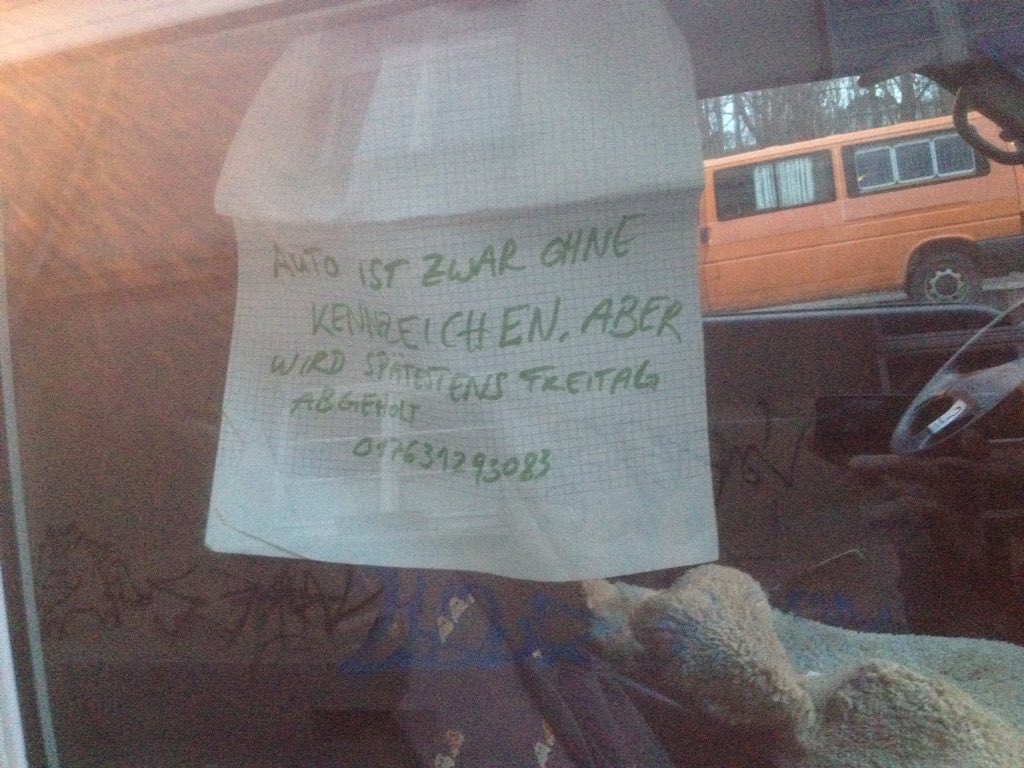 AUTO IST ZWAR OHNE
KENNZEICHEN. ABER
WIRD SPÄTESTENS FREITAG
ABGEHOLT
017631293083